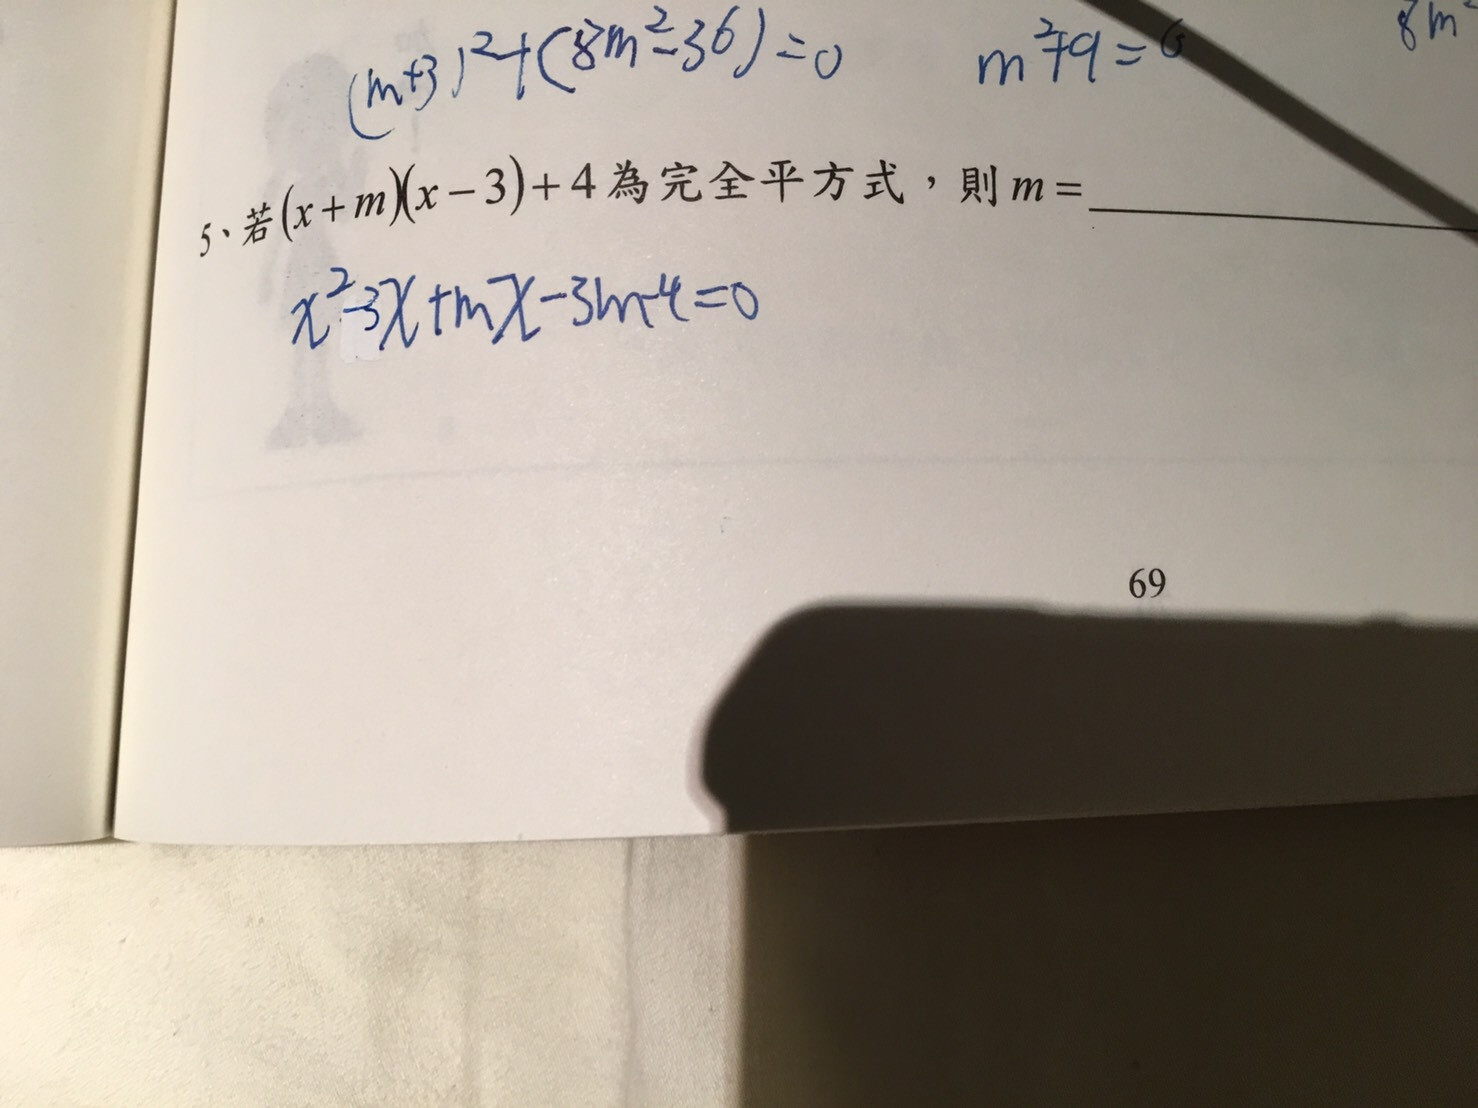 (m+3)²+(8m²-36)=0 m²+9=6 8m²
5、若(x+m)(x-3)+4為完全平方式，則m=
x²-3x+mx-3m-4=0
69